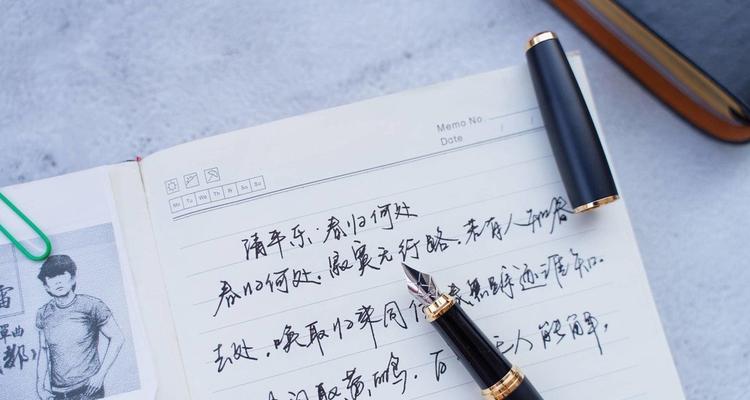 Memo No.
Date
Mo Tu We Th Fr Sa Su
清平乐:春归何处
春归何处,寂寞无行路.若有人知春
去处,唤取归来同 踪迹谁知.
问取黄鹂,百 人能解,
雷
單曲
都